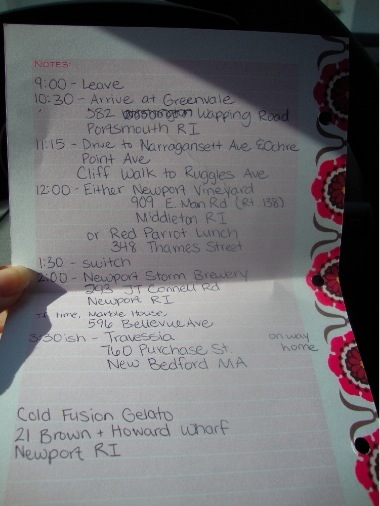 NOTES:
9:00 - Leave
10:30 - Arrive at Greenvale
582 Wapping Road
Portsmouth RI
11:15 - Drive to Narragansett Ave & Ochre
Point Ave
Cliff Walk to Ruggles Ave
12:00 - Either Newport Vineyard
909 E. Main Rd (Rt. 138)
Middleton RI
or Red Parrot Lunch
348 Thames Street
1:30 - switch
2:00 - Newport Storm Brewery
293 JT Connell Rd
Newport RI
If time, Marble House
596 Bellevue Ave
3:30ish - Travessia on way
760 Purchase St home
New Bedford MA
Cold Fusion Gelato
21 Brown + Howard Wharf
Newport RI